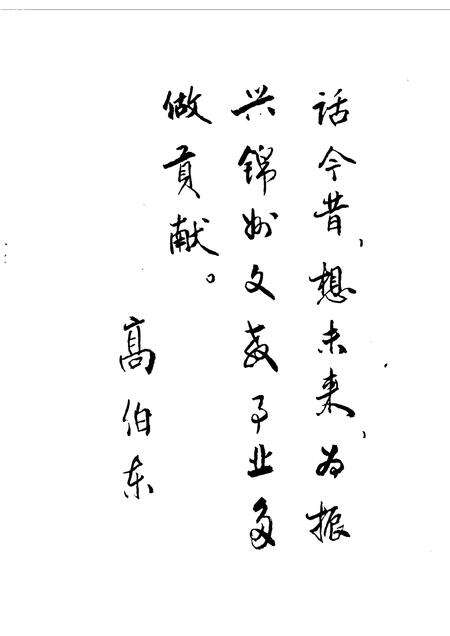 话今昔、想未来、为振
兴锦州文教事业多
做贡献。
高伯东